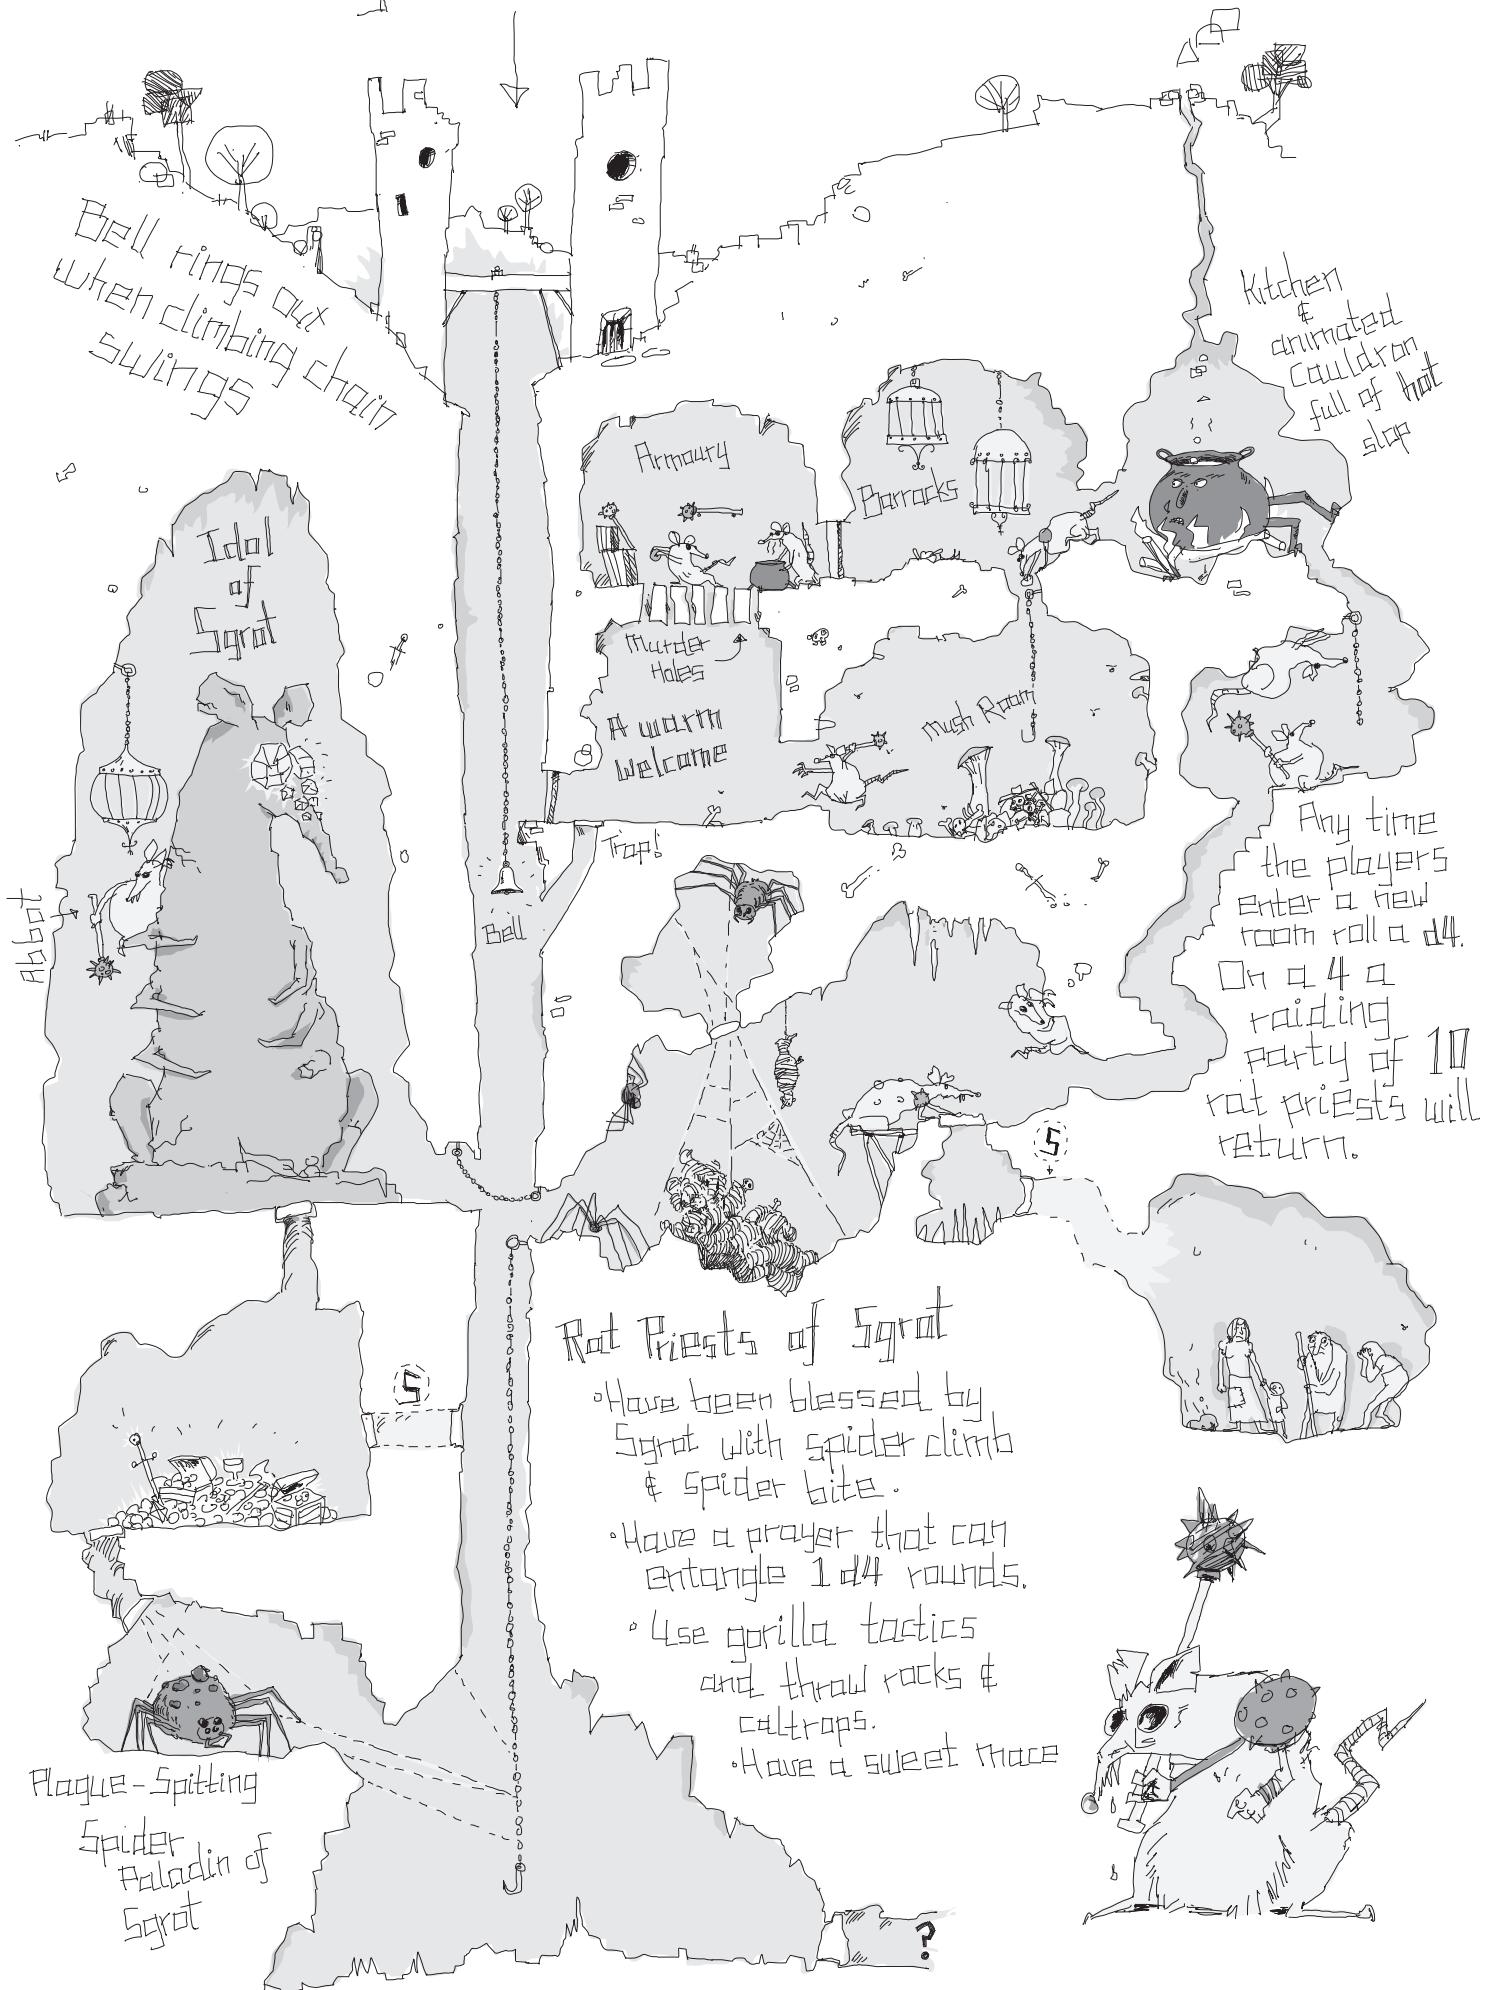 Bell rings out
when climbing chain
swings
Kitchen
&
animated
cauldron
full of hot
slop
Armoury
Barracks
Idol
of
Sgrot
Murder
Holes
A warm
welcome
Mush Room
Trap!
Bell
Abbot
Any time
the players
enter a new
room roll a d4.
On a 4 a
raiding
party of 10
rat priests will
return.
S
Rat Priests of Sgrot
•Have been blessed by
Sgrot with spider climb
& spider bite.
•Have a prayer that can
entangle 1d4 rounds.
•Use gorilla tactics
and throw rocks &
caltrops.
•Have a sweet mace
S
Plague-Spitting
Spider
Paladin of
Sgrot
?